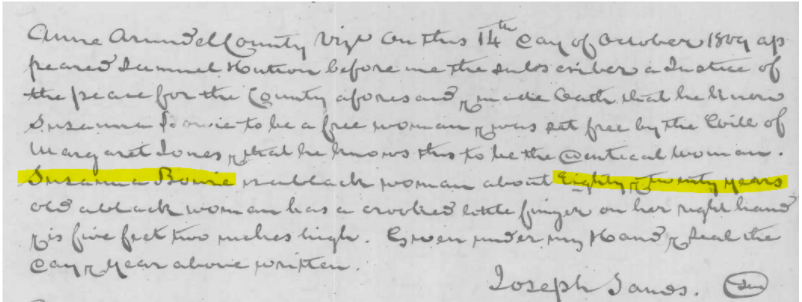 Anne Arundel County Viz on this 14th Day of October 1809 ap
peared Samuel Hutton before me the subscriber a Justice of
the peace for the County aforesaid & made Oath that he knew
Susanna Bowie to be a free woman & was set free by the Will of
Margaret Jones & that he knows this to be the identical woman.
Susanna Bowie is a black woman about Eighty & twenty years
old a black woman has a crooked little finger on her right hand
& is five feet two inches high. Given under my Hand & Seal the
Day & Year above written.
Joseph Sands.